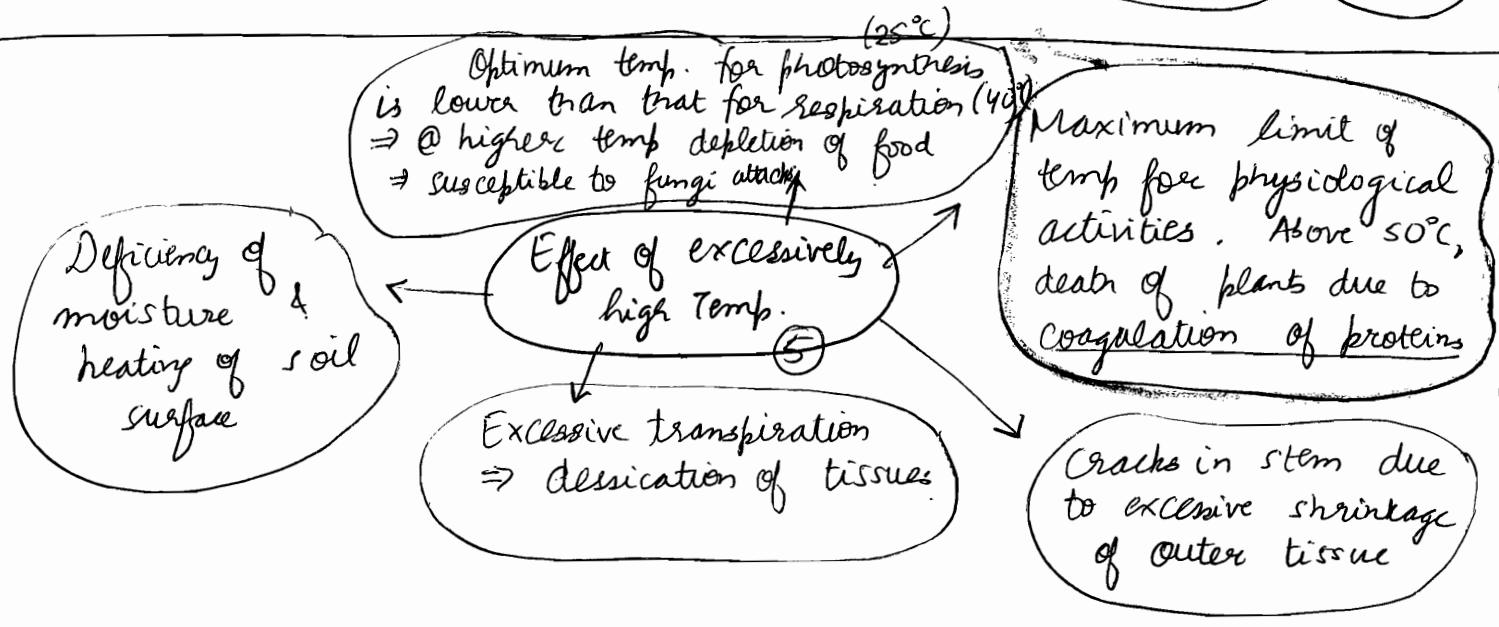 (25°C)
Optimum temp. for photosynthesis
is lower than that for respiration (40°)
⇒ @ higher temp depletion of food
⇒ susceptible to fungi attacks
Maximum limit of
temp for physiological
activities. Above 50°C,
death of plants due to
coagulation of proteins
Effect of excessively
high Temp.
5
Deficiency of
moisture &
heating of soil
surface
Excessive transpiration
⇒ dessication of tissues
Cracks in stem due
to excessive shrinkage
of outer tissue